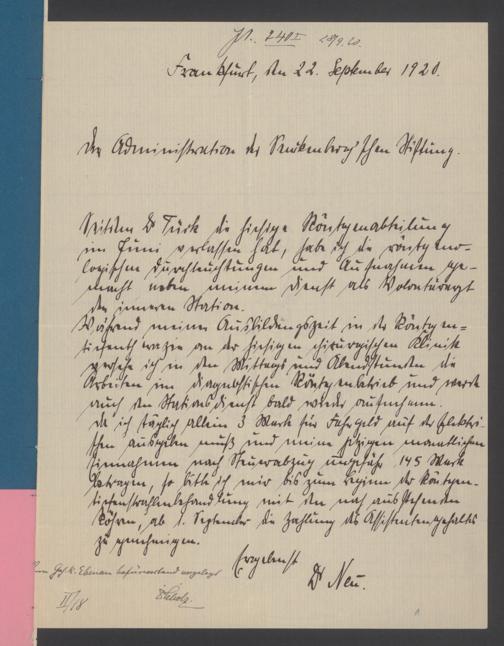 Frankfurt, den 22. September 1920.
Der Administration der Senckenberg'schen Stiftung.
Seitdem Dr Türk die hiesige Röntgenabteilung
im Juni verlassen hat, habe ich die röntgeno-
logischen Durchleuchtungen und Aufnahmen ge-
macht neben meinem Dienst als Volontärarzt
der inneren Station.
Während meiner Ausbildungszeit in der Röntgen-
tiefentherapie an der hiesigen chirurgischen Klinik
versehe ich in den Mittags und Abendstunden die
Arbeiten im diagnostischen Röntgenbetrieb und werde
auch den Stationsdienst bald wieder aufnehmen.
Da ich täglich allein 3 Mark für Fahrgeld auf der Elektri-
schen ausgeben muß und meine jetzigen monatlichen
Einnahmen nach Steuerabzug ungefähr 145 Mark
betragen, so bitte ich mir bis zum Beginn der Röntgen-
tiefenstrahlenbehandlung mit den noch ausstehenden
Röhren, ab 1. September die Zahlung des Assistentengehaltes
zu genehmigen.
Ergebenst
Dr Neu.
befürwortend vorgelegt